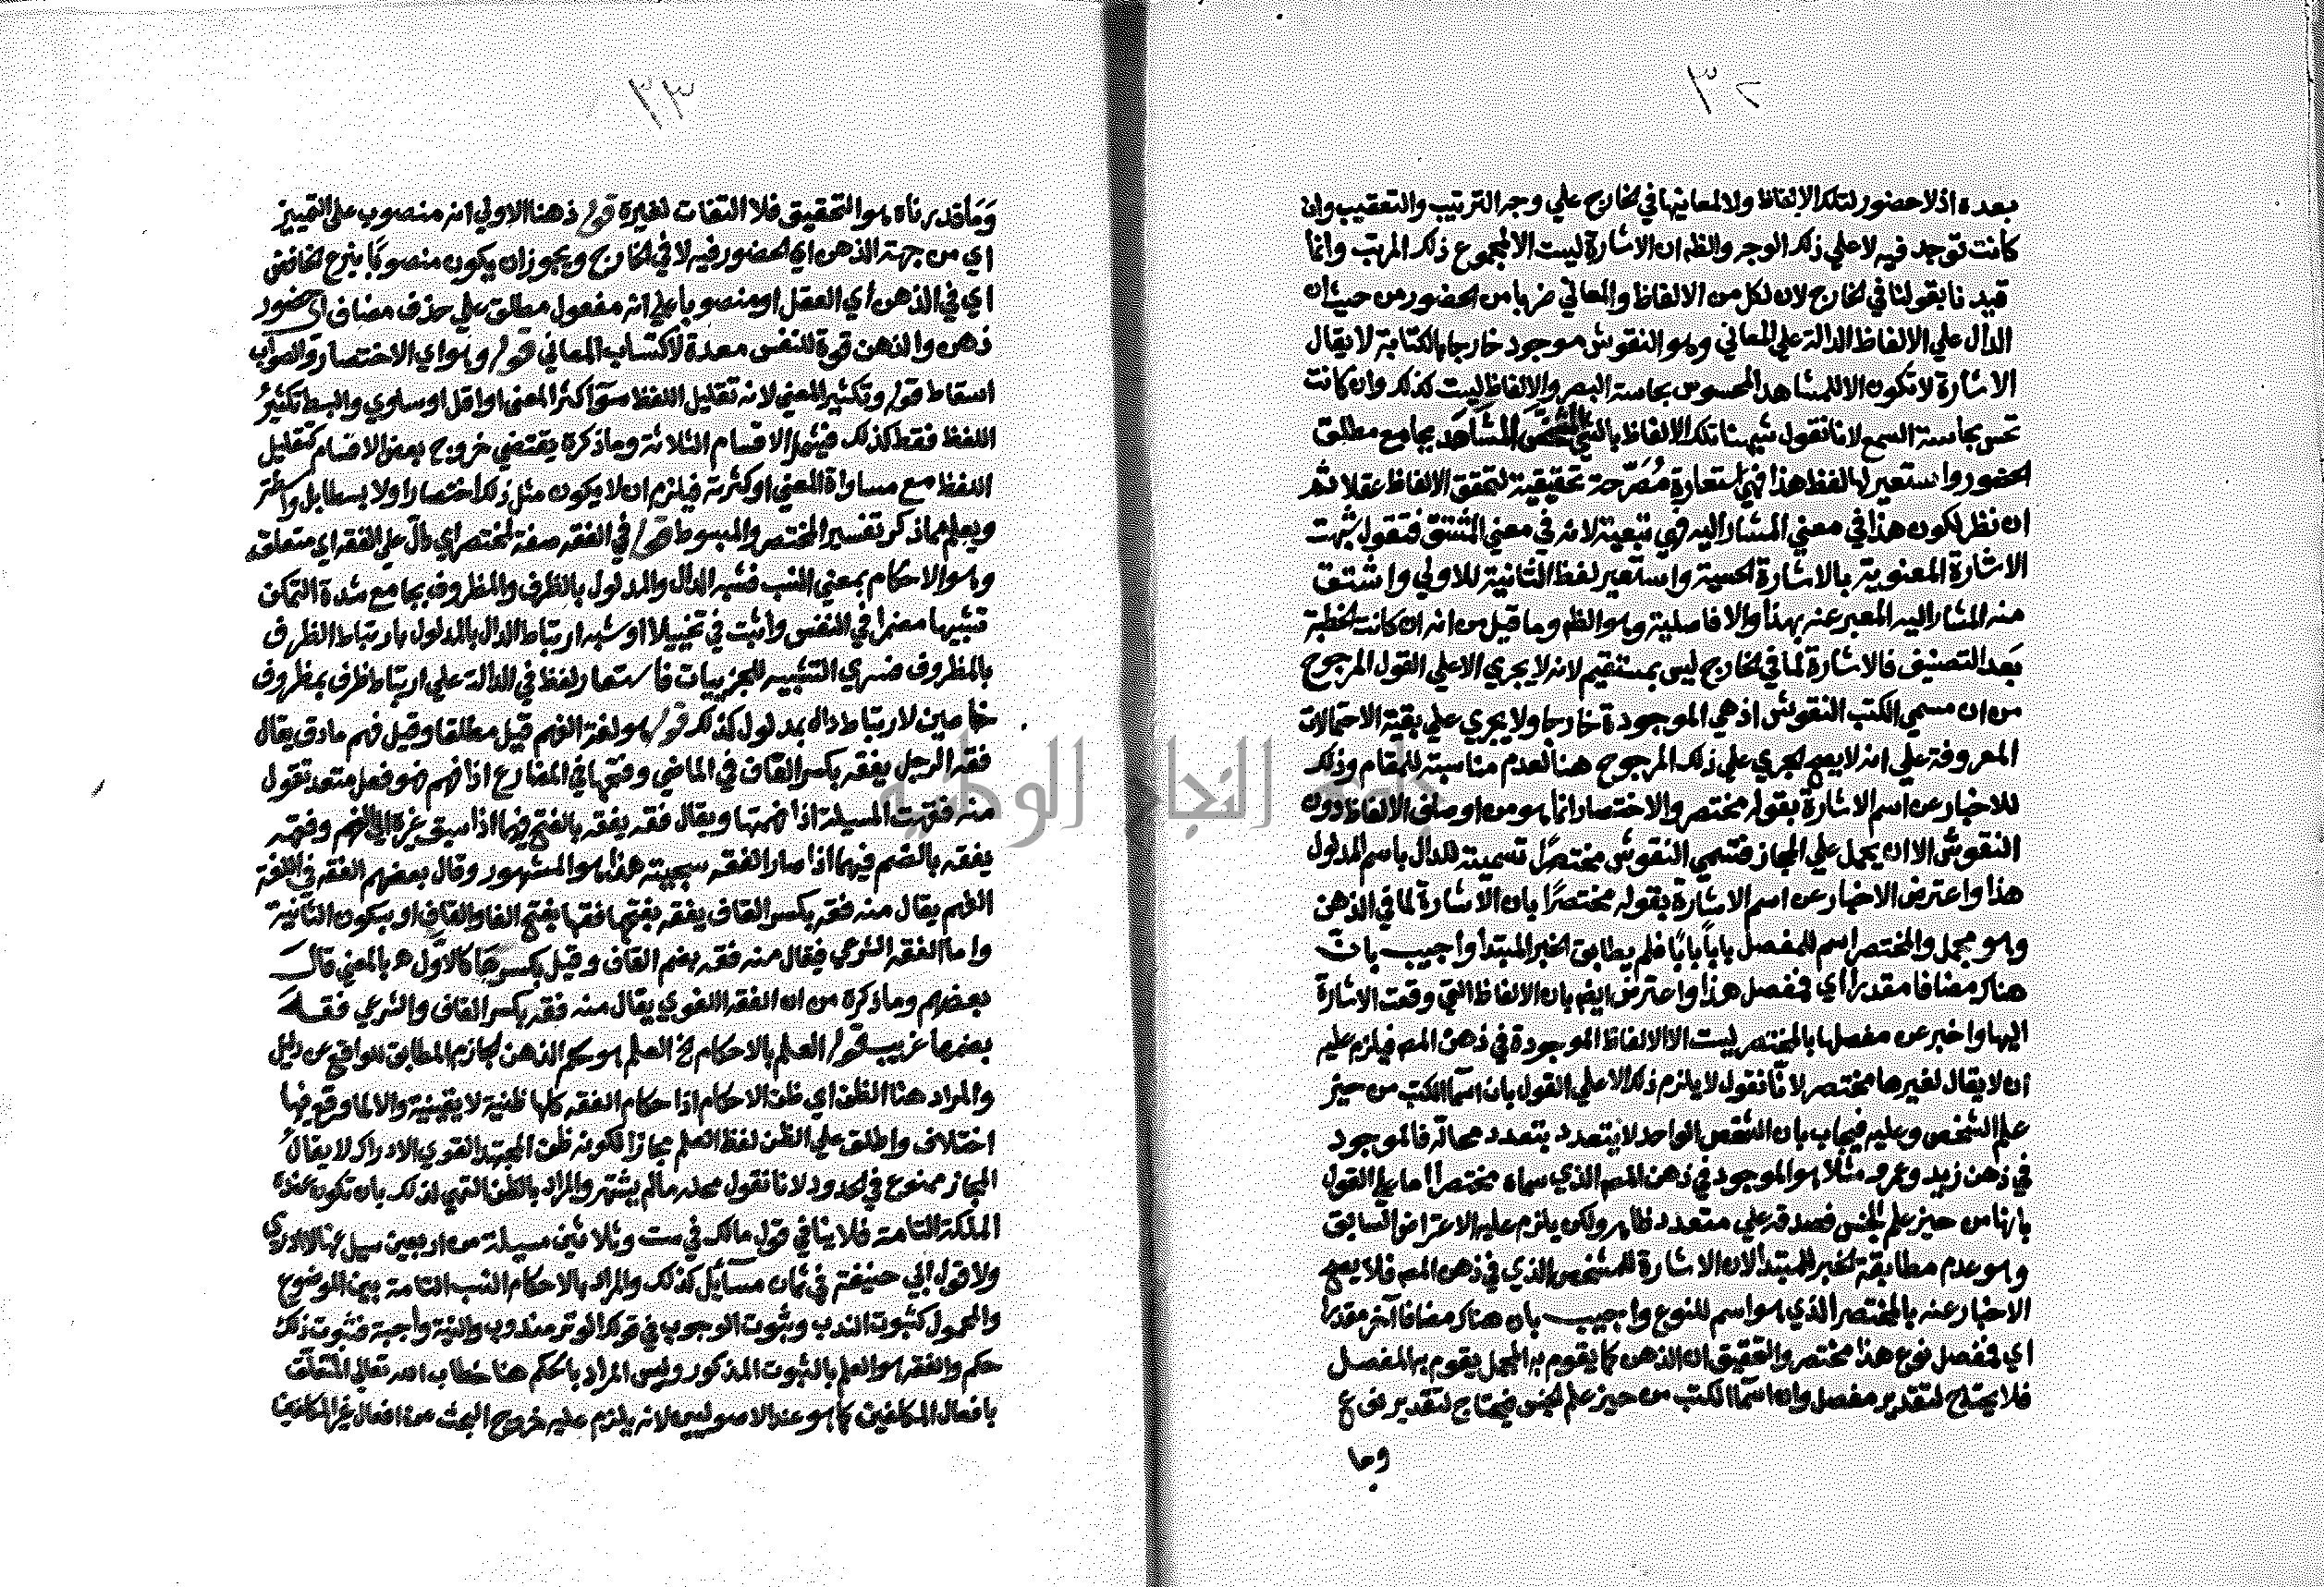 ٣٢
بعده اذ لا حضور لتلك الالفاظ ولا لمعانيها في الخارج علي وجه الترتيب والتعقيب وان
كانت توجد فيه لا علي ذلك الوجه والظم ان الاشارة ليست الا لمجموع ذلك المرتب وانما
قيد نا بقولنا في الخارج لان لكل من الالفاظ والمعاني ضربا من الحضور من حيث ان
الدال علي الالفاظ الدالة علي المعاني وهو النقوش موجود خارجا بالكتابة لا يقال
الاشارة لا تكون الا للمشاهد المحسوس بحاسة البصر والالفاظ ليست كذلك وان كانت
تحس بحاسة السمع لانا نقول شبهنا تلك الالفاظ بالشخص المشاهد بجامع مطلق
الحضور واستعير لها لفظ هذا فهي استعارة مُصَرّحة تحقيقية لتحقق الالفاظ عقلا ثم
ان نظر لكون هذا في معني المشار اليه فهي تبعية لانه في معني المشتق فتقول شبهت
الاشارة المعنوية بالاشارة الحسية واستعير لفظ الثانية للاولي واشتق
منه المشار اليه المعبر عنه بهذا والا فاصلية وهو الظم وما قيل من انه ان كانت الخطبة
بَعد التصنيف فالاشارة لما في الخارج ليس بمستقيم لانه لا يجري الا علي القول المرجوح
من ان مسمي الكتب النقوش اذ هي الموجودة خارجا ولا يجري علي بقية الاحتمالات
المعروفة علي انه لا يصح الجري علي ذلك المرجوح هنا لعدم مناسبته للمقام وذلك
للاخبار عن اسم الاشارة بقوله مختصر والاختصار انما هو من اوصاف الالفاظ دون
النقوش الا ان يحمل علي المجاز فتسمي النقوش مختصرًا تسمية للدال باسم المدلول
هذا واعترض الاخبار عن اسم الاشارة بقوله مختصرًا بان الاشارة لما في الذهن
وهو مجمل والمختصر اسم للمفصل باباً بابًا فلم يطابق الخبر المبتدأ واجيب بان
هناك مضافا مقدرا اي مفصل هذا واعترض ايضم بان الالفاظ التي وقعت الاشارة
اليها واخبر عن مفصلها بالمختصر ليست الا الالفاظ الموجودة في ذهن المص فيلزم عليه
ان لا يقال لغيرها مختصر لانّا نقول لا يلزم ذلك الا علي القول بان اسما الكتب من حيز
علم الشخص وعليه فيجاب بان الشخص الواحد لا يتعدد بتعدد محاله فالموجود
في ذهن زيد وعمرو مثلا هو الموجود في ذهن المص الذي سماه مختصرا اما علي القول
بانها من حيز علم الجنس فصدقه علي متعدد ظاهر ولكن يلزم عليه الاعتراض السابق
وهو عدم مطابقة الخبر للمبتدأ لان الاشارة للشخص الذي في ذهن المص فلا يصح
الاخبار عنه بالمختصر الذي هو اسم للنوع واجيب بان هناك مضافا آخر مقدرا
اي مفصل نوع هذا مختصر والتحقيق ان الذهن كما يقوم به المجمل يقوم به المفصل
فلا يحتاج لتقدير مفصل وان اسما الكتب من حيز علم الجنس فيحتاج لتقدير نوع
وما
٣٣
وَمَا قدرناه هو التحقيق فلا التفات لغيره قوله ذهنا الاولي انه منصوب علي التمييز
اي من جهة الذهن اي الحضور فيه لا في الخارج ويجوز ان يكون منصوبًا بنزع الخافض
اي في الذهن اي العقل او منصوبا علي انه مفعول مطلق علي حذف مضاف اي حضور
ذهن والذهن قوة للنفس معدة لاكتساب المعاني قوله وهو اي الاختصار والصواب
اسقاط قوله وتكثير المعني لانه تقليل اللفظ سَوَآ كثر المعني او اقل او ساوي والبسط تكثيرُ
اللفظ فقط كذلك فيشمل الاقسام الثلاثة وما ذكره يقتضي خروج بعض الاقسام كتقليل
اللفظ مع مساواة المعني او كثرته فيلزم ان لا يكون مثل ذلك اختصارا ولا بسطا بل واسطة
ويعلم مما ذكر تفسير المختصر والمبسوط قوله في الفقه صفة لمختصر اي دالّ علي الفقه اي متعلقه
وهو الاحكام بمعني النسب فشبه الدال والمدلول بالظرف والمظروف بجامع شدة التمكن
تشبيها مضمرا في النفس واثبت في تخييلا او شبه ارتباط الدال بالمدلول بارتباط الظرف
بالمظروف فسري التشبيه للجزييات فاستعار لفظ في للدالة علي ارتباط ظرف بمظروف
خاصين لارتباط دال بمدلول كذلك قوله هو لغة الفهم قيل مطلقا وقيل فهم مادق يقال
فقه الرجل يفقه بكسر القاف في الماضي وفتحها في المضارع اذا فهم فهو فعل متعد تقول
منه فقهت المسيلة اذا فهمتها ويقال فقه يفقه بالفتح فيهما اذا سبق غيره الي الفهم وفقه
يفقه بالضم فيهما اذا صار الفقه سجيته هذا هو المشهور وقال بعضهم الفقه في اللغة
الفهم يقال منه فقه بكسر القاف يفقه بفتحها فقها بفتح الفا والقاف او بسكون الثانية
واما الفقه الشرعي فيقال منه فقه بضم القاف وقيل بكسرها كالاول ه بالمعني قال
بعضهم وما ذكره من ان الفقه اللغوي يقال منه فقه بكسر القاف والشرعي فقه
بضمها غريب قوله العلم بالاحكام الخ العلم هو حكم الذهن الجازم المطابق للواقع عن دليل
والمراد هنا الظن اي ظن الاحكام اذ احكام الفقه كلها ظنية لا يقينية والا لما وقع فيها
اختلاف واطلق علي الظن لفظ العلم مجازا لكونه ظن المجتهد القوي الادراك لا يقالُ
المجاز ممنوع في الحدود لانا نقول محله ما لم يشتهر والمراد بالظن التهيي لذلك بان تكون عنده
الملكة التامة فلا ينافي قول مالك في ست وثلاثين مسيلة من اربعين سيل عنها لا ادري
ولا قول ابي حنيفة في ثمان مسآئل كذلك والمراد بالاحكام النسب التامة بين الموضوع
والمحمول كثبوت الندب وثبوت الوجوب في قولك الوتر مندوب والنية واجبة فثبوت ذلك
حكم والفقه هو العلم بالثبوت المذكور وليس المراد بالحكم هنا خطاب الله تعالي المتعلق
بافعال المكلفين كما هو عند الاصوليين لانه يلزم عليه خروج البحث عن افعال غير المكلفين
جامعة النجاح الوطنية